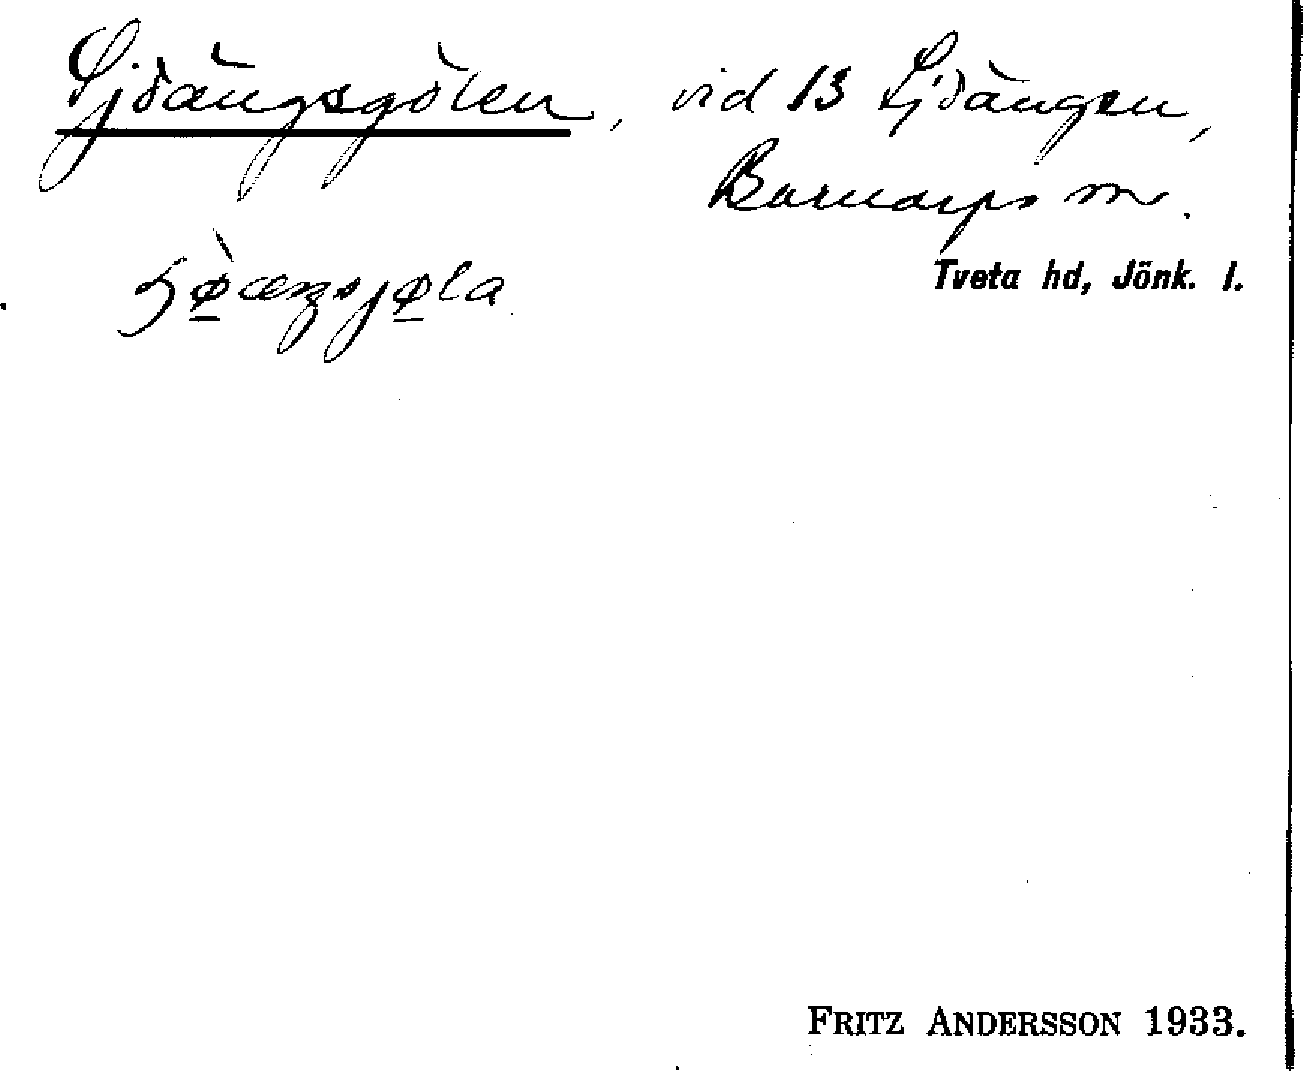 Sjöängsgölen, vid 13 Sjöängen,
Barnarps sn.
Tveta hd, Jönk. l.
FRITZ ANDERSSON 1933.